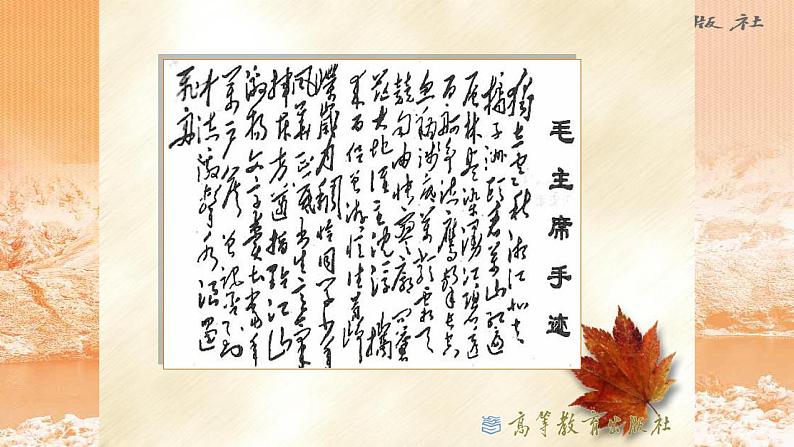 版社
毛主席手迹
独立寒秋湘江北去
橘子洲头看万山红遍
层林尽染漫江碧透
百舸争流鹰击长空
鱼翔浅底万类霜天
竞自由怅寥廓问苍
茫大地谁主沉浮携
来百侣曾游忆往昔峥
嵘岁月稠恰同学少年
风华正茂书生意气
挥斥方遒指点江山
激扬文字粪土当年
万户侯曾记否到
中流击水浪遏
飞舟
高等教育出版社